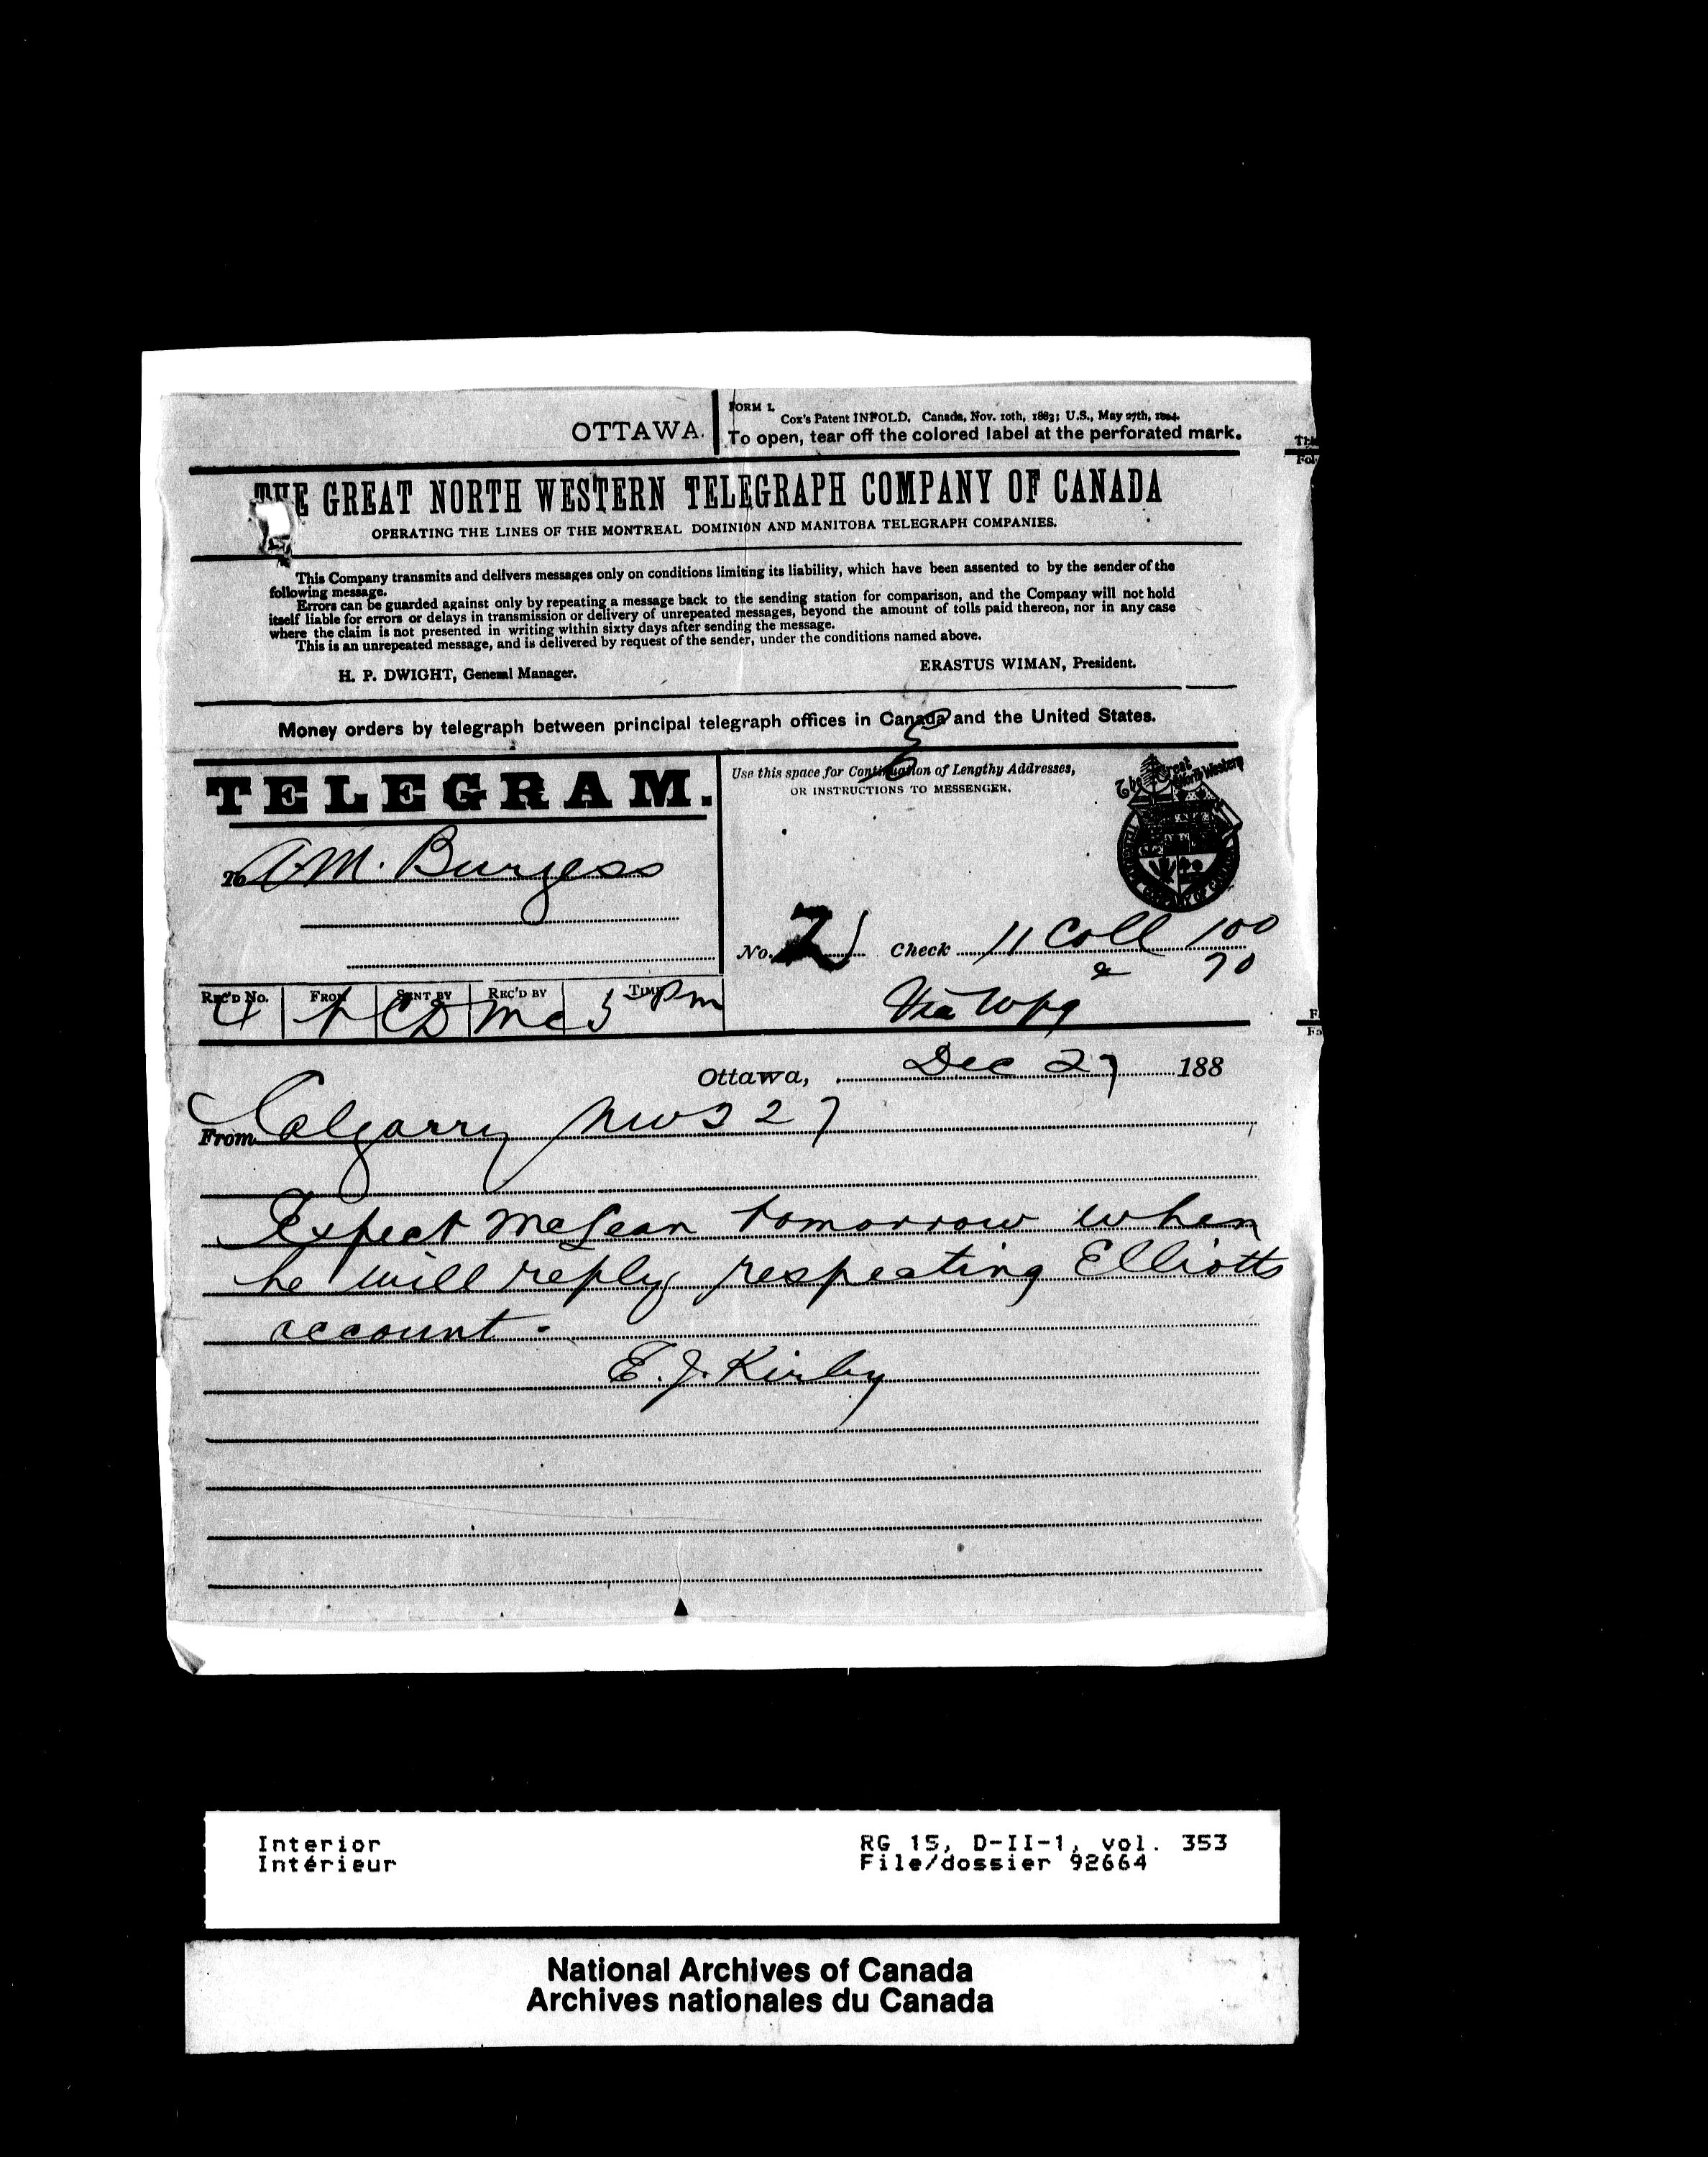 OTTAWA.
FORM 1.
Cox's Patent INFOLD. Canada, Nov. 10th, 1883; U.S., May 27th,
To open, tear off the colored label at the perforated mark.
THE GREAT NORTH WESTERN TELEGRAPH COMPANY OF CANADA
OPERATING THE LINES OF THE MONTREAL DOMINION AND MANITOBA TELEGRAPH COMPANIES.
This Company transmits and delivers messages only on conditions limiting its liability, which have been assented to by the sender of the
following message.
Errors can be guarded against only by repeating a message back to the sending station for comparison, and the Company will not hold
itself liable for errors or delays in transmission or delivery of unrepeated messages, beyond the amount of tolls paid thereon, nor in any case
where the claim is not presented in writing within sixty days after sending the message.
This is an unrepeated message, and is delivered by request of the sender, under the conditions named above.
H. P. DWIGHT, General Manager.
ERASTUS WIMAN, President.
Money orders by telegraph between principal telegraph offices in Canada and the United States.
TELEGRAM.
Use this space for Continuation of Lengthy Addresses,
OR INSTRUCTIONS TO MESSENGER.
The Great North Western
To A M. Burgess
No. 21 Check 11 Coll 100
& 70
Via Wpg
REC'D NO. FROM SENT BY REC'D BY TIME
4 CD Mc 5 Pm
Ottawa, Dec 27 188
From Calgarry NWT 27
Expect McLean tomorrow when
he will reply respecting Elliotts
account.
E. J. Kirby
Interior
Intérieur
RG 15, D-II-1, vol. 353
File/dossier 92664
National Archives of Canada
Archives nationales du Canada